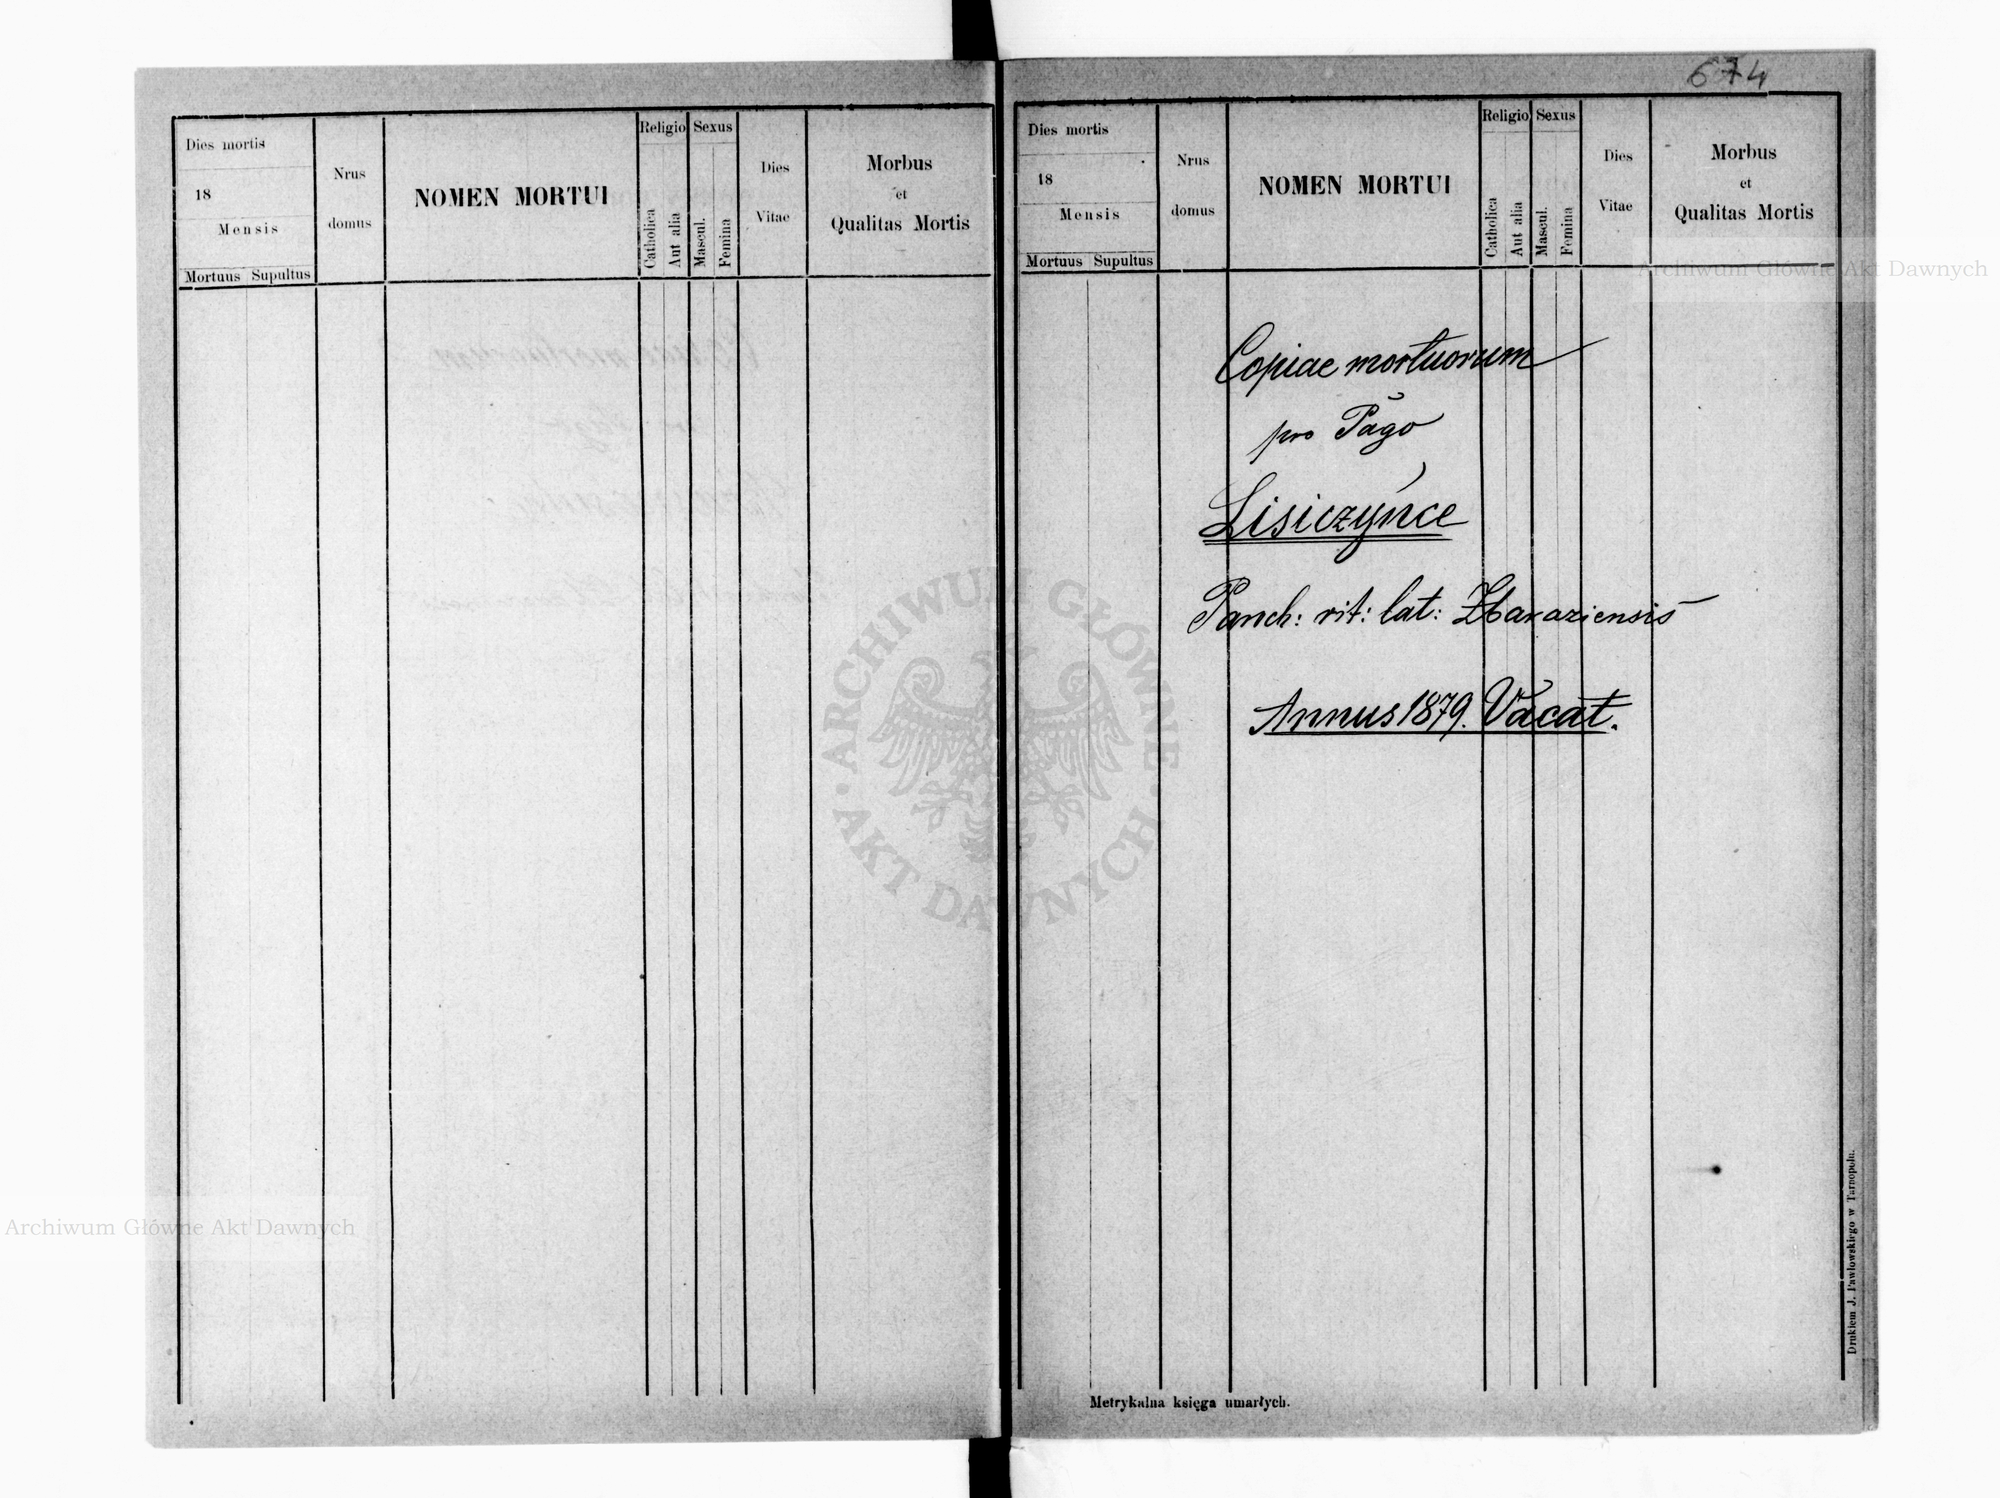 674
Dies mortis
18
Mensis
Mortuus Supultus
Nrus
domus
NOMEN MORTUI
Religio
Catholica
Aut alia
Sexus
Mascul.
Femina
Dies
Vitae
Morbus
et
Qualitas Mortis
Dies mortis
18
Mensis
Mortuus Supultus
Nrus
domus
NOMEN MORTUI
Religio
Catholica
Aut alia
Sexus
Mascul.
Femina
Dies
Vitae
Morbus
et
Qualitas Mortis
Archiwum Główne Akt Dawnych
Copiae mortuorum
pro Pago
Lisiczyńce
Paroch: rit: lat: Zbaraziensis
Annus 1879. Vacat.
ARCHIWUM GŁÓWNE · AKT DAWNYCH ·
Archiwum Główne Akt Dawnych
Metrykalna księga umarłych.
Drukiem J. Pawłowskiego w Tarnopolu.